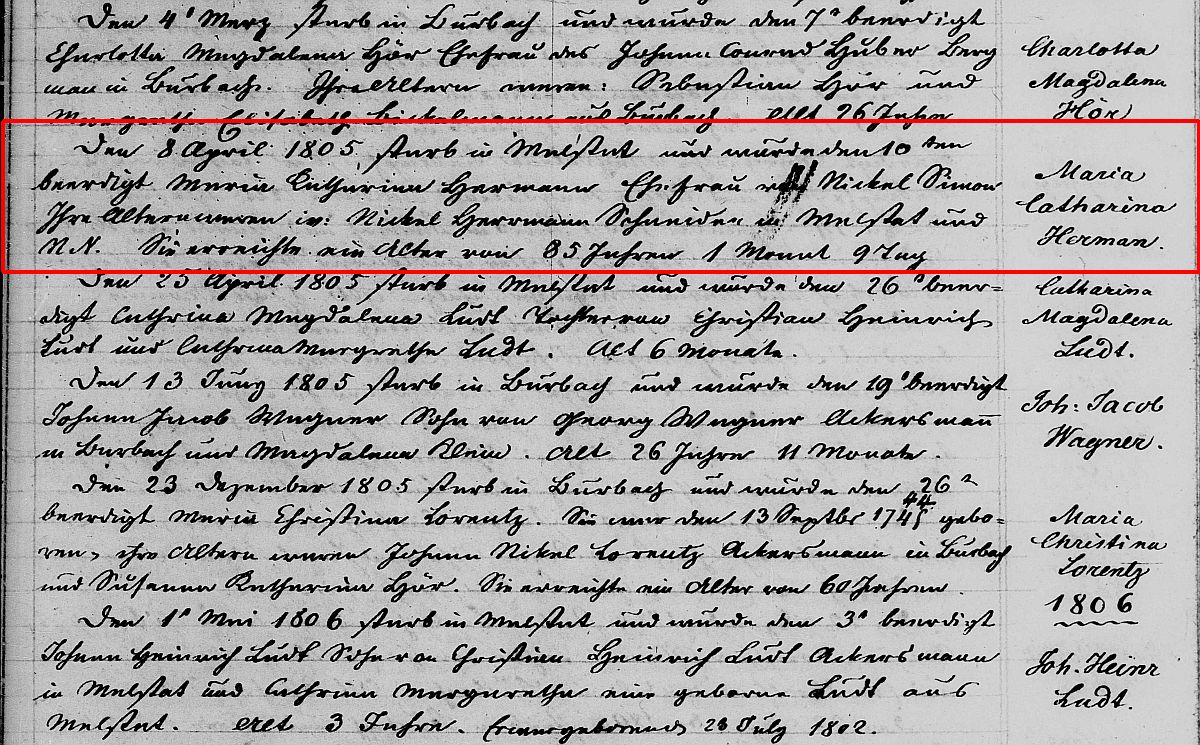 Den 4' Merz starb in Burbach und wurde den 7' beerdigt
Charlotta Magdalena Hör Ehefrau des Johann Conrad Huber Berg
man in Burbach. Ihre Altern waren: Sebastian Hör und
Margretha Elisabeth Bickelmann aus Burbach alt 26 Jahre
Charlotta
Magdalena
Hör
Den 8 April 1805 starb in Malstat und wurde den 10 ten
beerdigt Maria Catharina Hermann Ehefrau von Nickel Simon
Ihre Altern waren Nickel Herrmann Schneider in Malstat und
N.N. Sie erreichte ein Alter von 85 Jahren 1 Monat 9 Tag
Maria
Catharina
Herman.
Den 25 April 1805 starb in Malstat und wurde den 26' beer=
digt Cathrina Magdalena Ludt Tochter von Christian Heinrich
Ludt und Cathrina Margretha Ludt. Alt 6 Monate.
Catharina
Magdalena
Ludt.
Den 13 Juny 1805 starb in Burbach und wurde den 19' beerdigt
Johann Jacob Wagner Sohn von Georg Wagner Ackersman̄
in Burbach und Magdalena Klein. Alt 26 Jahre 11 Monate.
Joh: Jacob
Wagner.
Den 23 Dezember 1805 starb in Burbach und wurde den 26'
beerdigt Maria Christina Lorentz. Sie war den 13 Septbr 1745 44 gebo=
ren, ihre Altern waren Johann Nickel Lorentz Ackersmann in Burbach
und Susanna Katharina Hör. Sie erreichte ein Alter von 60 Jahren.
Maria
Christina
Lorentz
1806
Den 1' Mai 1806 starb in Malstat und wurde den 3' beerdigt
Johann Heinrich Ludt Sohn von Christian Heinrich Ludt Ackersmann
in Malstat und Cathrina Margaretha eine geborne Ludt aus
Malstat. Alt 3 Jahre. Er war geboren d 23 July 1802.
Joh. Heinr
Ludt.